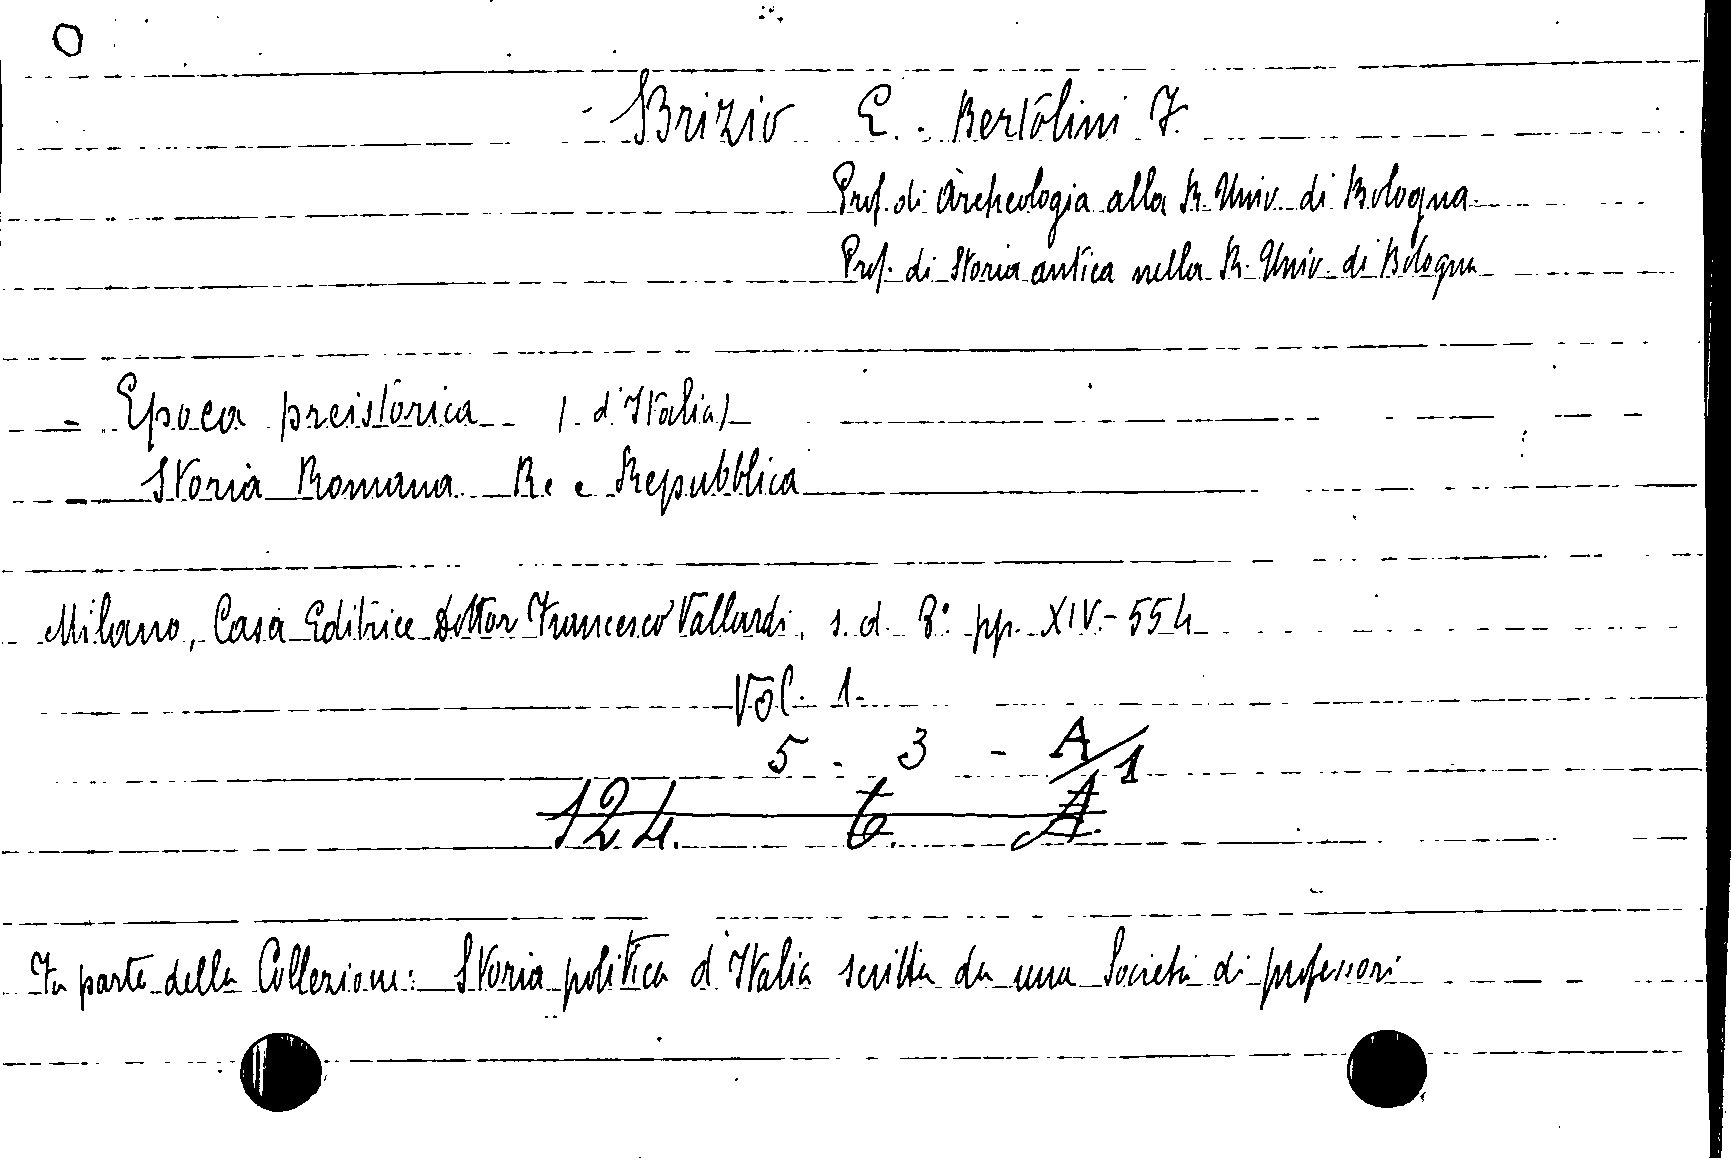 - Brizio E. - Bertolini F.
Prof. di Archeologia alla R. Univ. di Bologna
Prof. di Storia antica nella R. Univ. di Bologna
- Epoca preistorica (d'Italia)
- Storia Romana Re e Repubblica
Milano, Casa Editrice Dottor Francesco Vallardi, s. d. 8° pp. XIV-554
Vol. 1.
5 - 3 - A/1
124. 6. A.
Fa parte della Collezione: Storia politica d'Italia scritta da una Società di professori